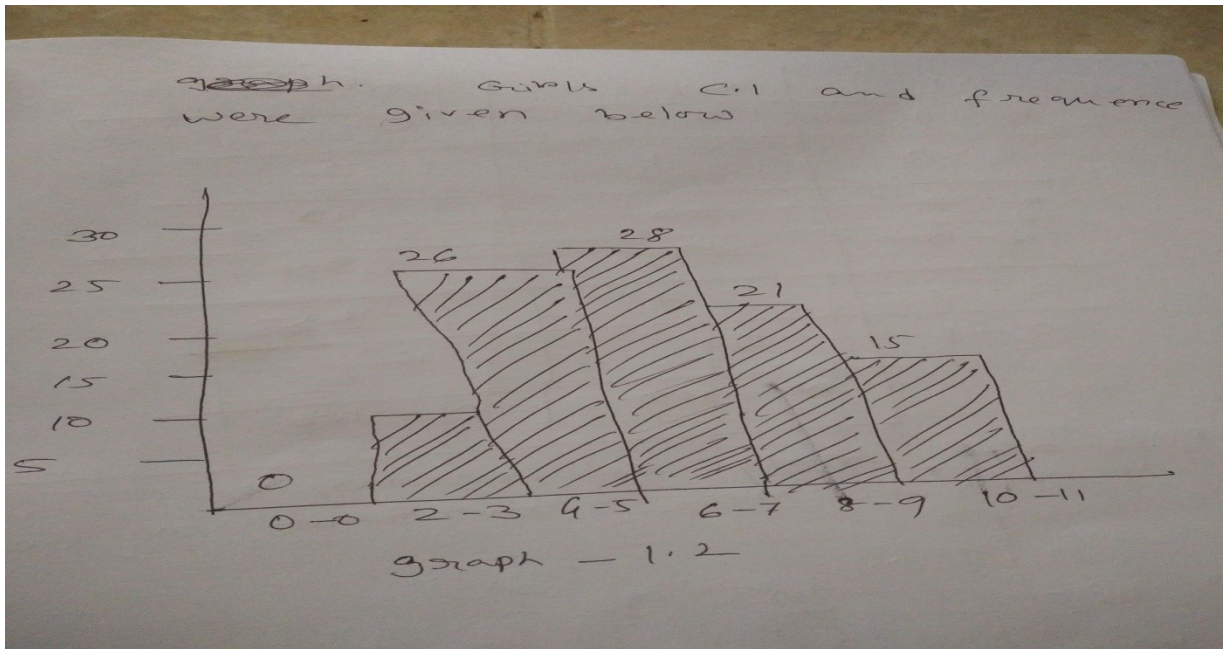 graph. Girls C.I and frequence
were given below
30
25
20
15
10
5
26
28
21
15
0
0-0 2-3 4-5 6-7 8-9 10-11
graph - 1.2